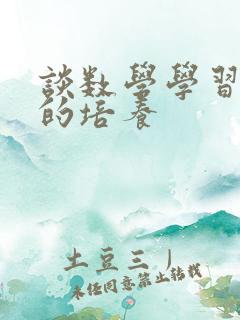 談数學學習
的培養
土豆三丿
未经同意禁止转载